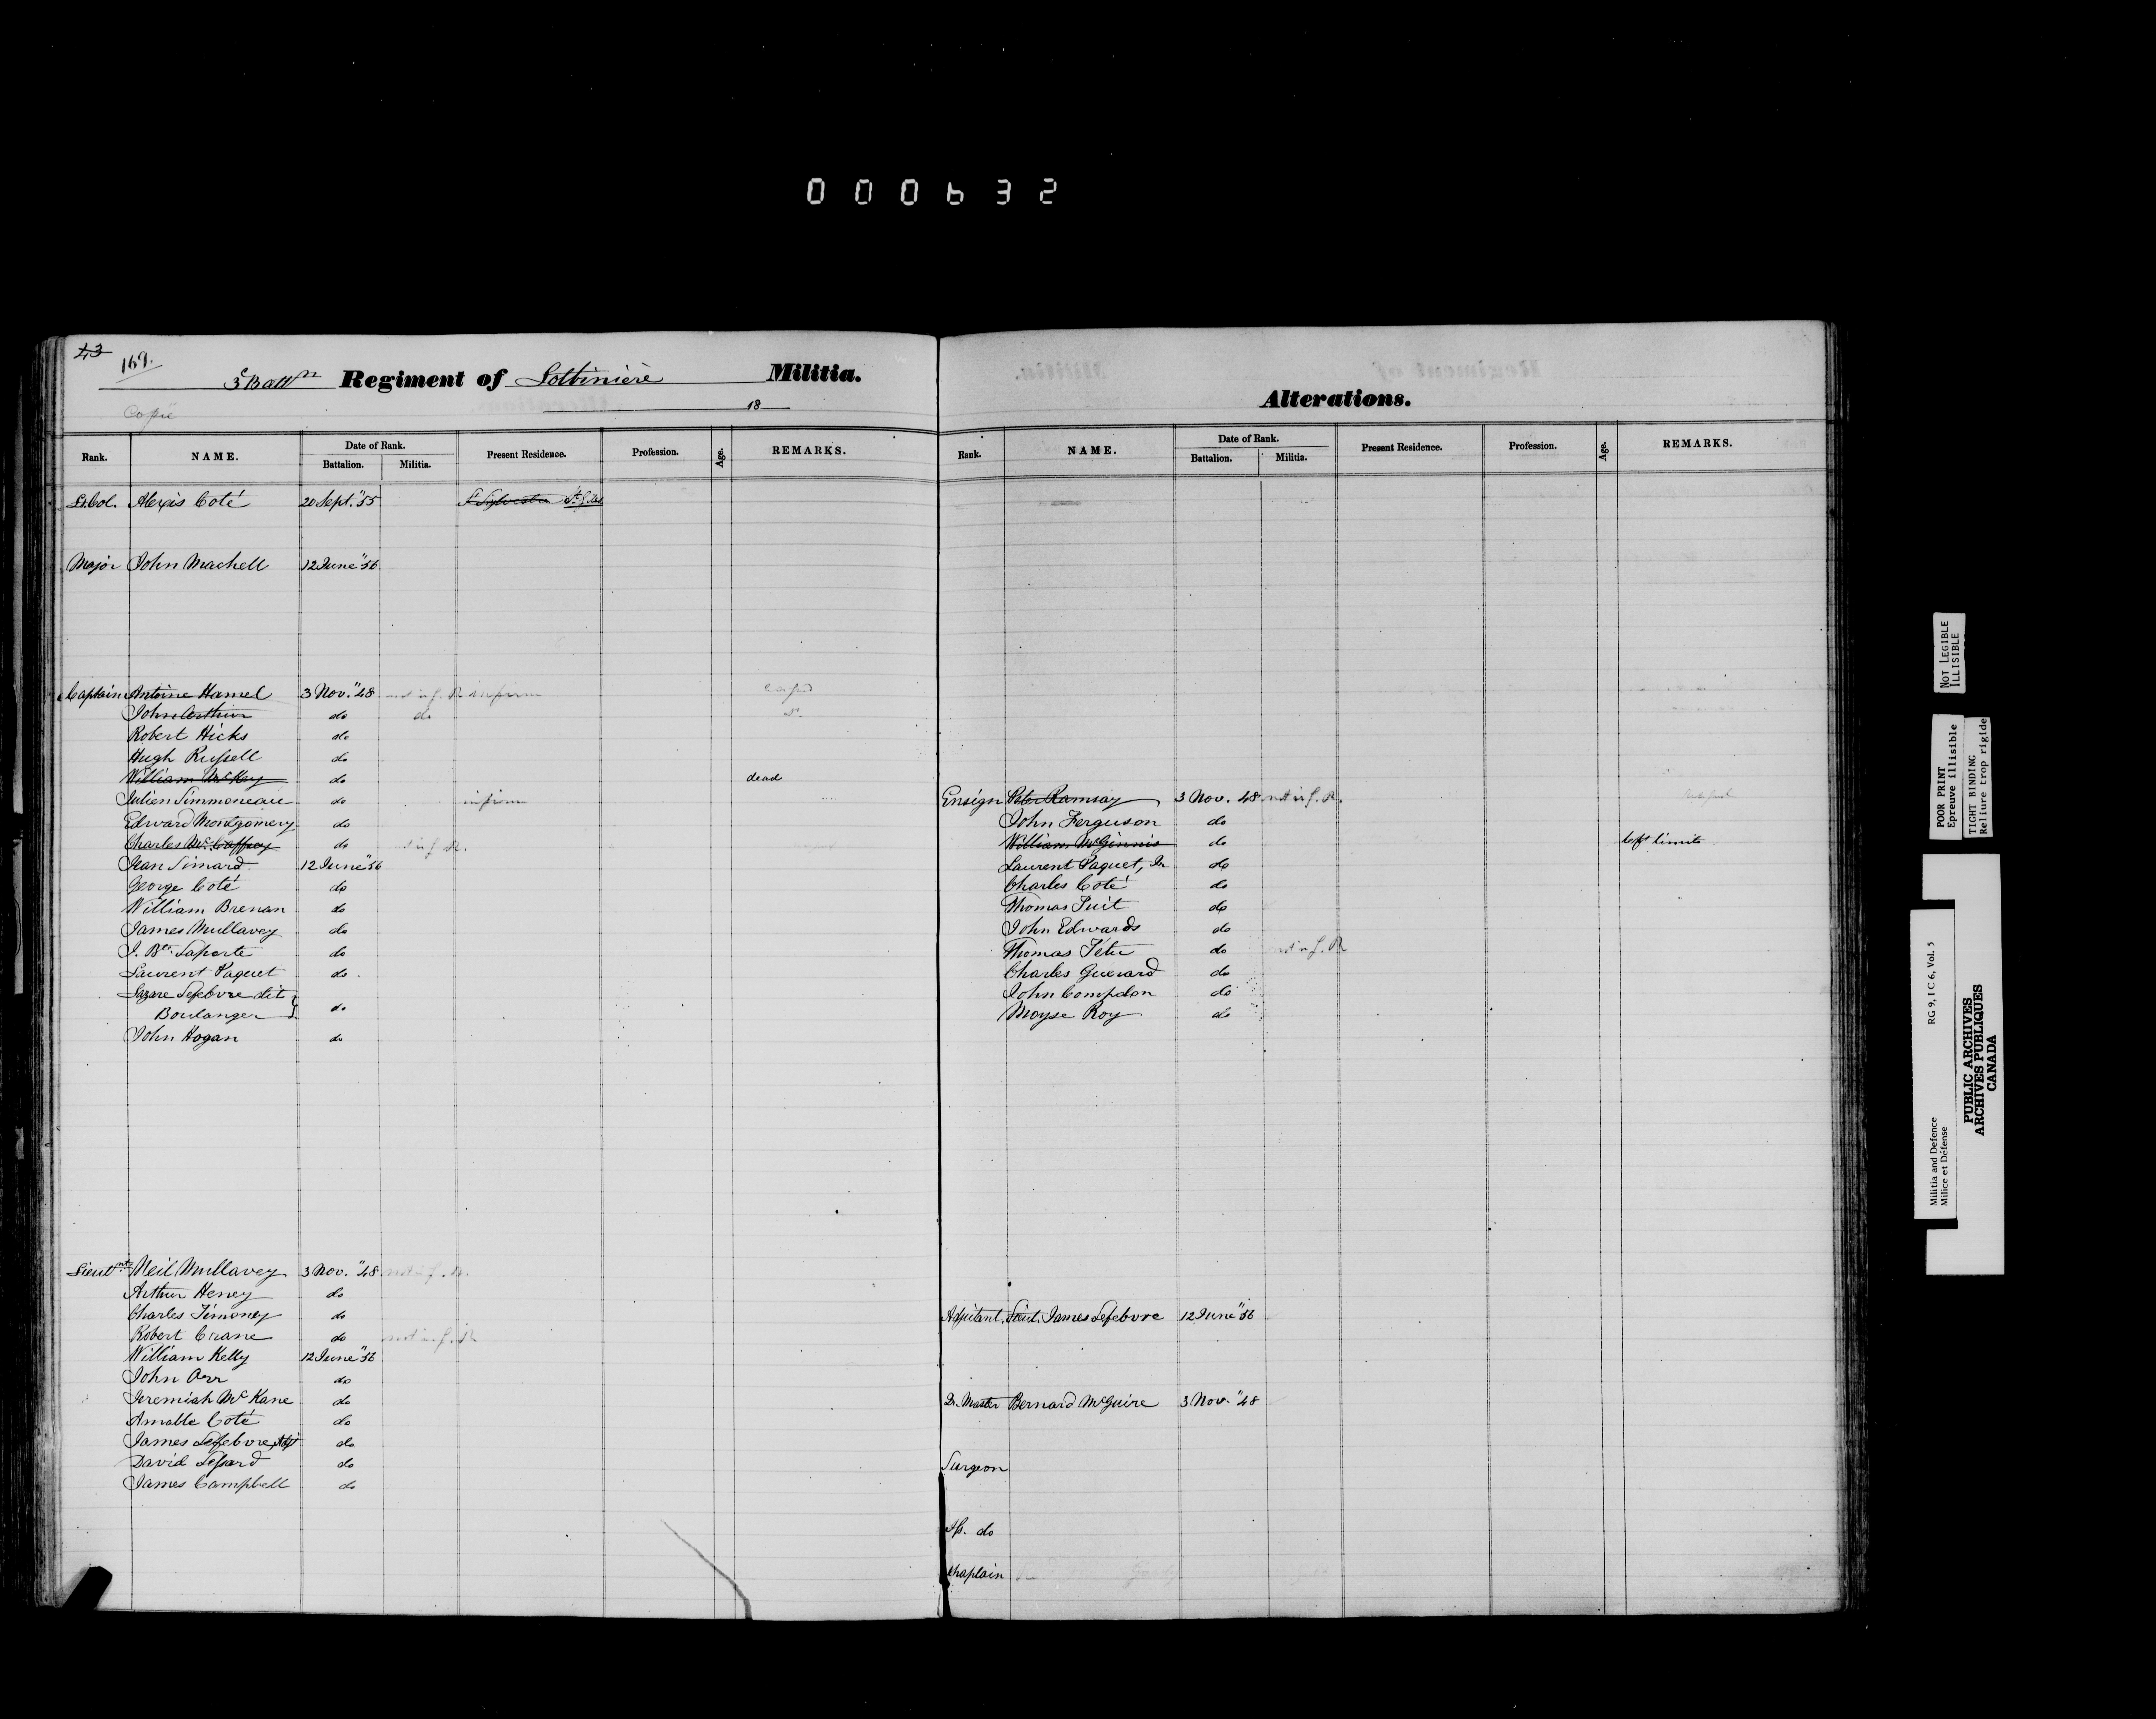 000632
43
169.
3e Battn Regiment of Lotbinière Militia.
Copié
18
Rank. NAME. Date of Rank. Battalion. Militia. Present Residence. Profession. Age. REMARKS.
Lt. Col. Alexis Coté 20 Sept. "55 St Sylvestre St Giles
Major John Machell 12 June "56
Captain Antoine Hamel 3 Nov. "48 not in f. R. infirm
John Arthur do do
Robert Hicks do
Hugh Russell do
William McKey do dead
Julien Simmoneau do infirm
Edward Montgomery do
Charles McCaffrey do not in f. R.
Jean Simard 12 June "56
George Coté do
William Brenan do
James Mullavey do
J. Bte. Laporte do
Laurent Paquet do
Lazare Lefebvre dit
Boulanger } do
John Hogan do
Lieutnts Neil Mullavey 3 Nov. "48 not in f. R.
Arthur Heney do
Charles Timoney do
Robert Crane do not in f. R.
William Kelly 12 June "56
John Orr do
Jeremiah McKane do
Amable Coté do
James Lefebvre, Adjt do
David Lessard do
James Campbell do
Alterations.
Rank. NAME. Date of Rank. Battalion. Militia. Present Residence. Profession. Age. REMARKS.
Ensign Peter Ramsay 3 Nov. 48 not in f. R.
John Ferguson do
William McGinnis do left limits
Laurent Paquet, Jr do
Charles Coté do
Thomas Tuit do
John Edwards do
Thomas Tétu do not in f. R
Charles Guerard do
John Compdon do
Moyse Roy do
Adjutant. Lieut. James Lefebvre 12 June "56
Qr. Master Bernard McGuire 3 Nov. "48
Surgeon
Ass. do
Chaplain
NOT LEGIBLE
ILLISIBLE
POOR PRINT
Epreuve illisible
TIGHT BINDING
Reliure trop rigide
RG 9, I C 6, Vol. 5
Militia and Defence
Milice et Défense
PUBLIC ARCHIVES
ARCHIVES PUBLIQUES
CANADA